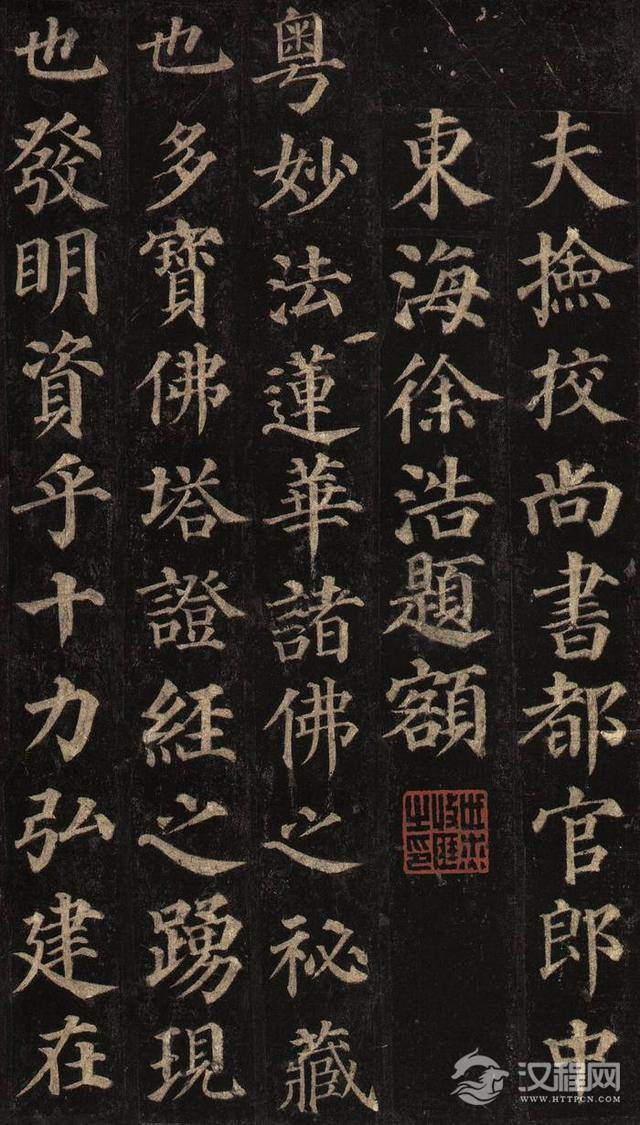 夫撿挍尚書都官郎中
東海徐浩題額
粵妙法蓮華諸佛之祕藏
也多寶佛塔證經之踴現
也發明資乎十力弘建在
汉程网
WWW.HTTPCN.COM